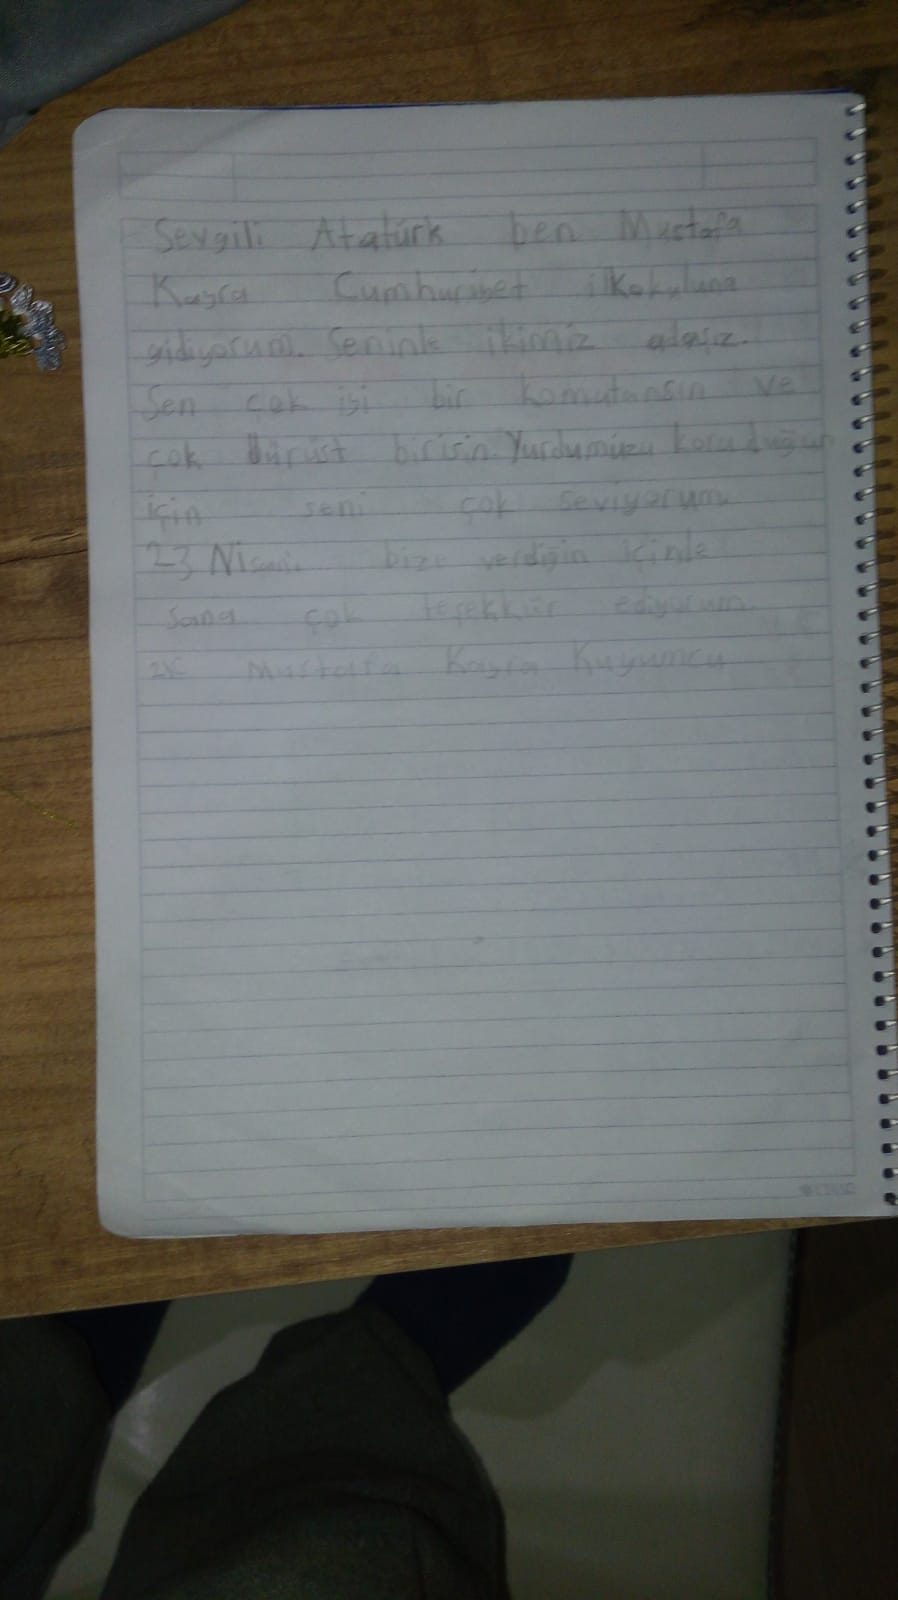 Sevgili Atatürk ben Mustafa
Kayra Cumhuriyet ilkokuluna
gidiyorum. Seninle ikimiz adaşız.
Sen çok iyi bir komutansın ve
çok dürüst birisin. Yurdumuzu koruduğun
için seni çok seviyorum.
23 Nisanı bize verdiğin içinde
sana çok teşekkür ediyorum.
2K Mustafa Kayra Kuyumcu